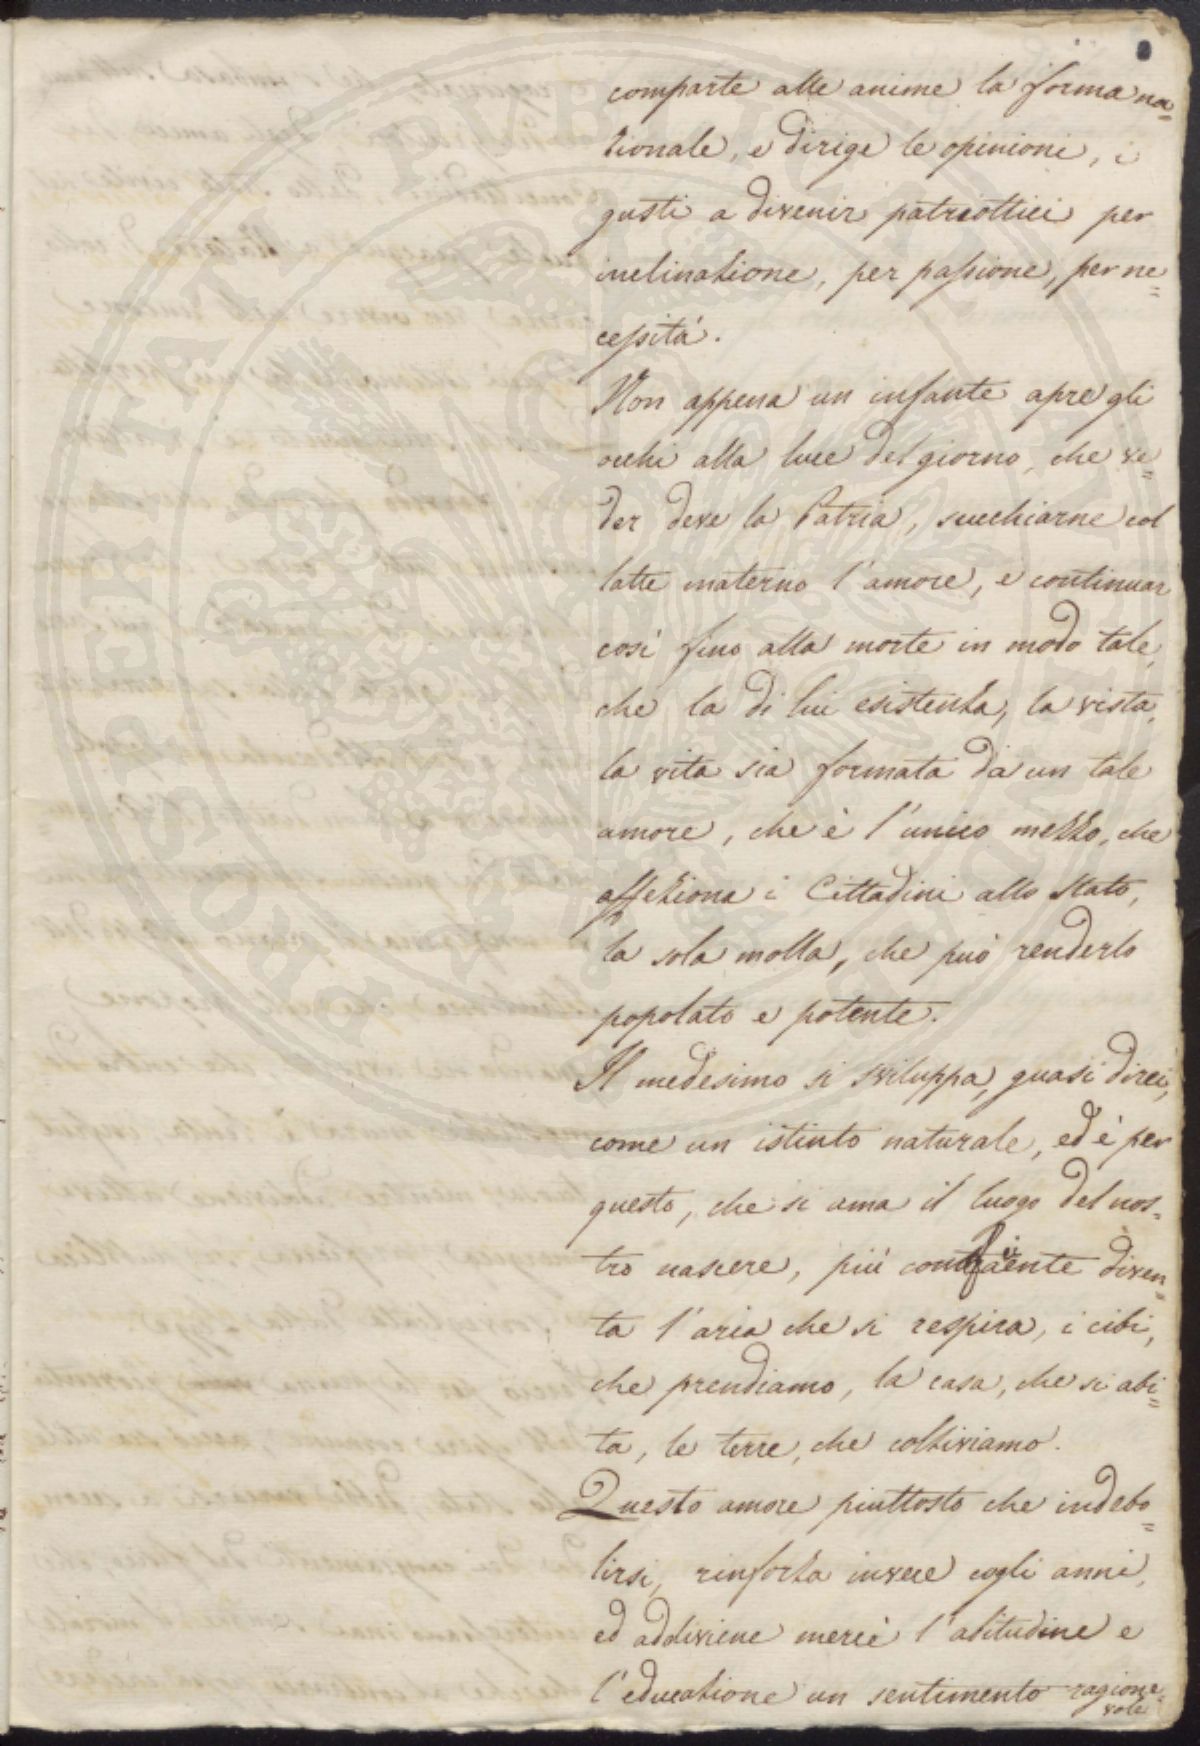 comparte alle anime la forma na=
zionale, e dirige le opinioni, i
gusti a divenir patriottici per
inclinazione, per passione, per ne=
cessità.
Non appena un infante apre gli
occhi alla luce del giorno, che ve=
der deve la Patria, succhiarne col
latte materno l'amore, e continuar
così fino alla morte in modo tale,
che la di lui esistenza, la vista,
la vita sia formata da un tale
amore, che è l'unico mezzo, che
affeziona i Cittadini allo Stato,
la sola molla, che può renderlo
popolato e potente.
Il medesimo si sviluppa, quasi direi,
come un istinto naturale, ed è per
questo, che si ama il luogo del nos=
tro nascere, più diven=
ta l'aria che si respira, i cibi,
che prendiamo, la casa, che si abi=
ta, le terre, che coltiviamo.
Questo amore piuttosto che indebo=
lirsi, rinforza invece cogli anni,
ed addiviene mercè l'abitudine e
l'educazione un sentimento ragione=
vole
PROSPERITATI PUBLICAE AUGENDAE